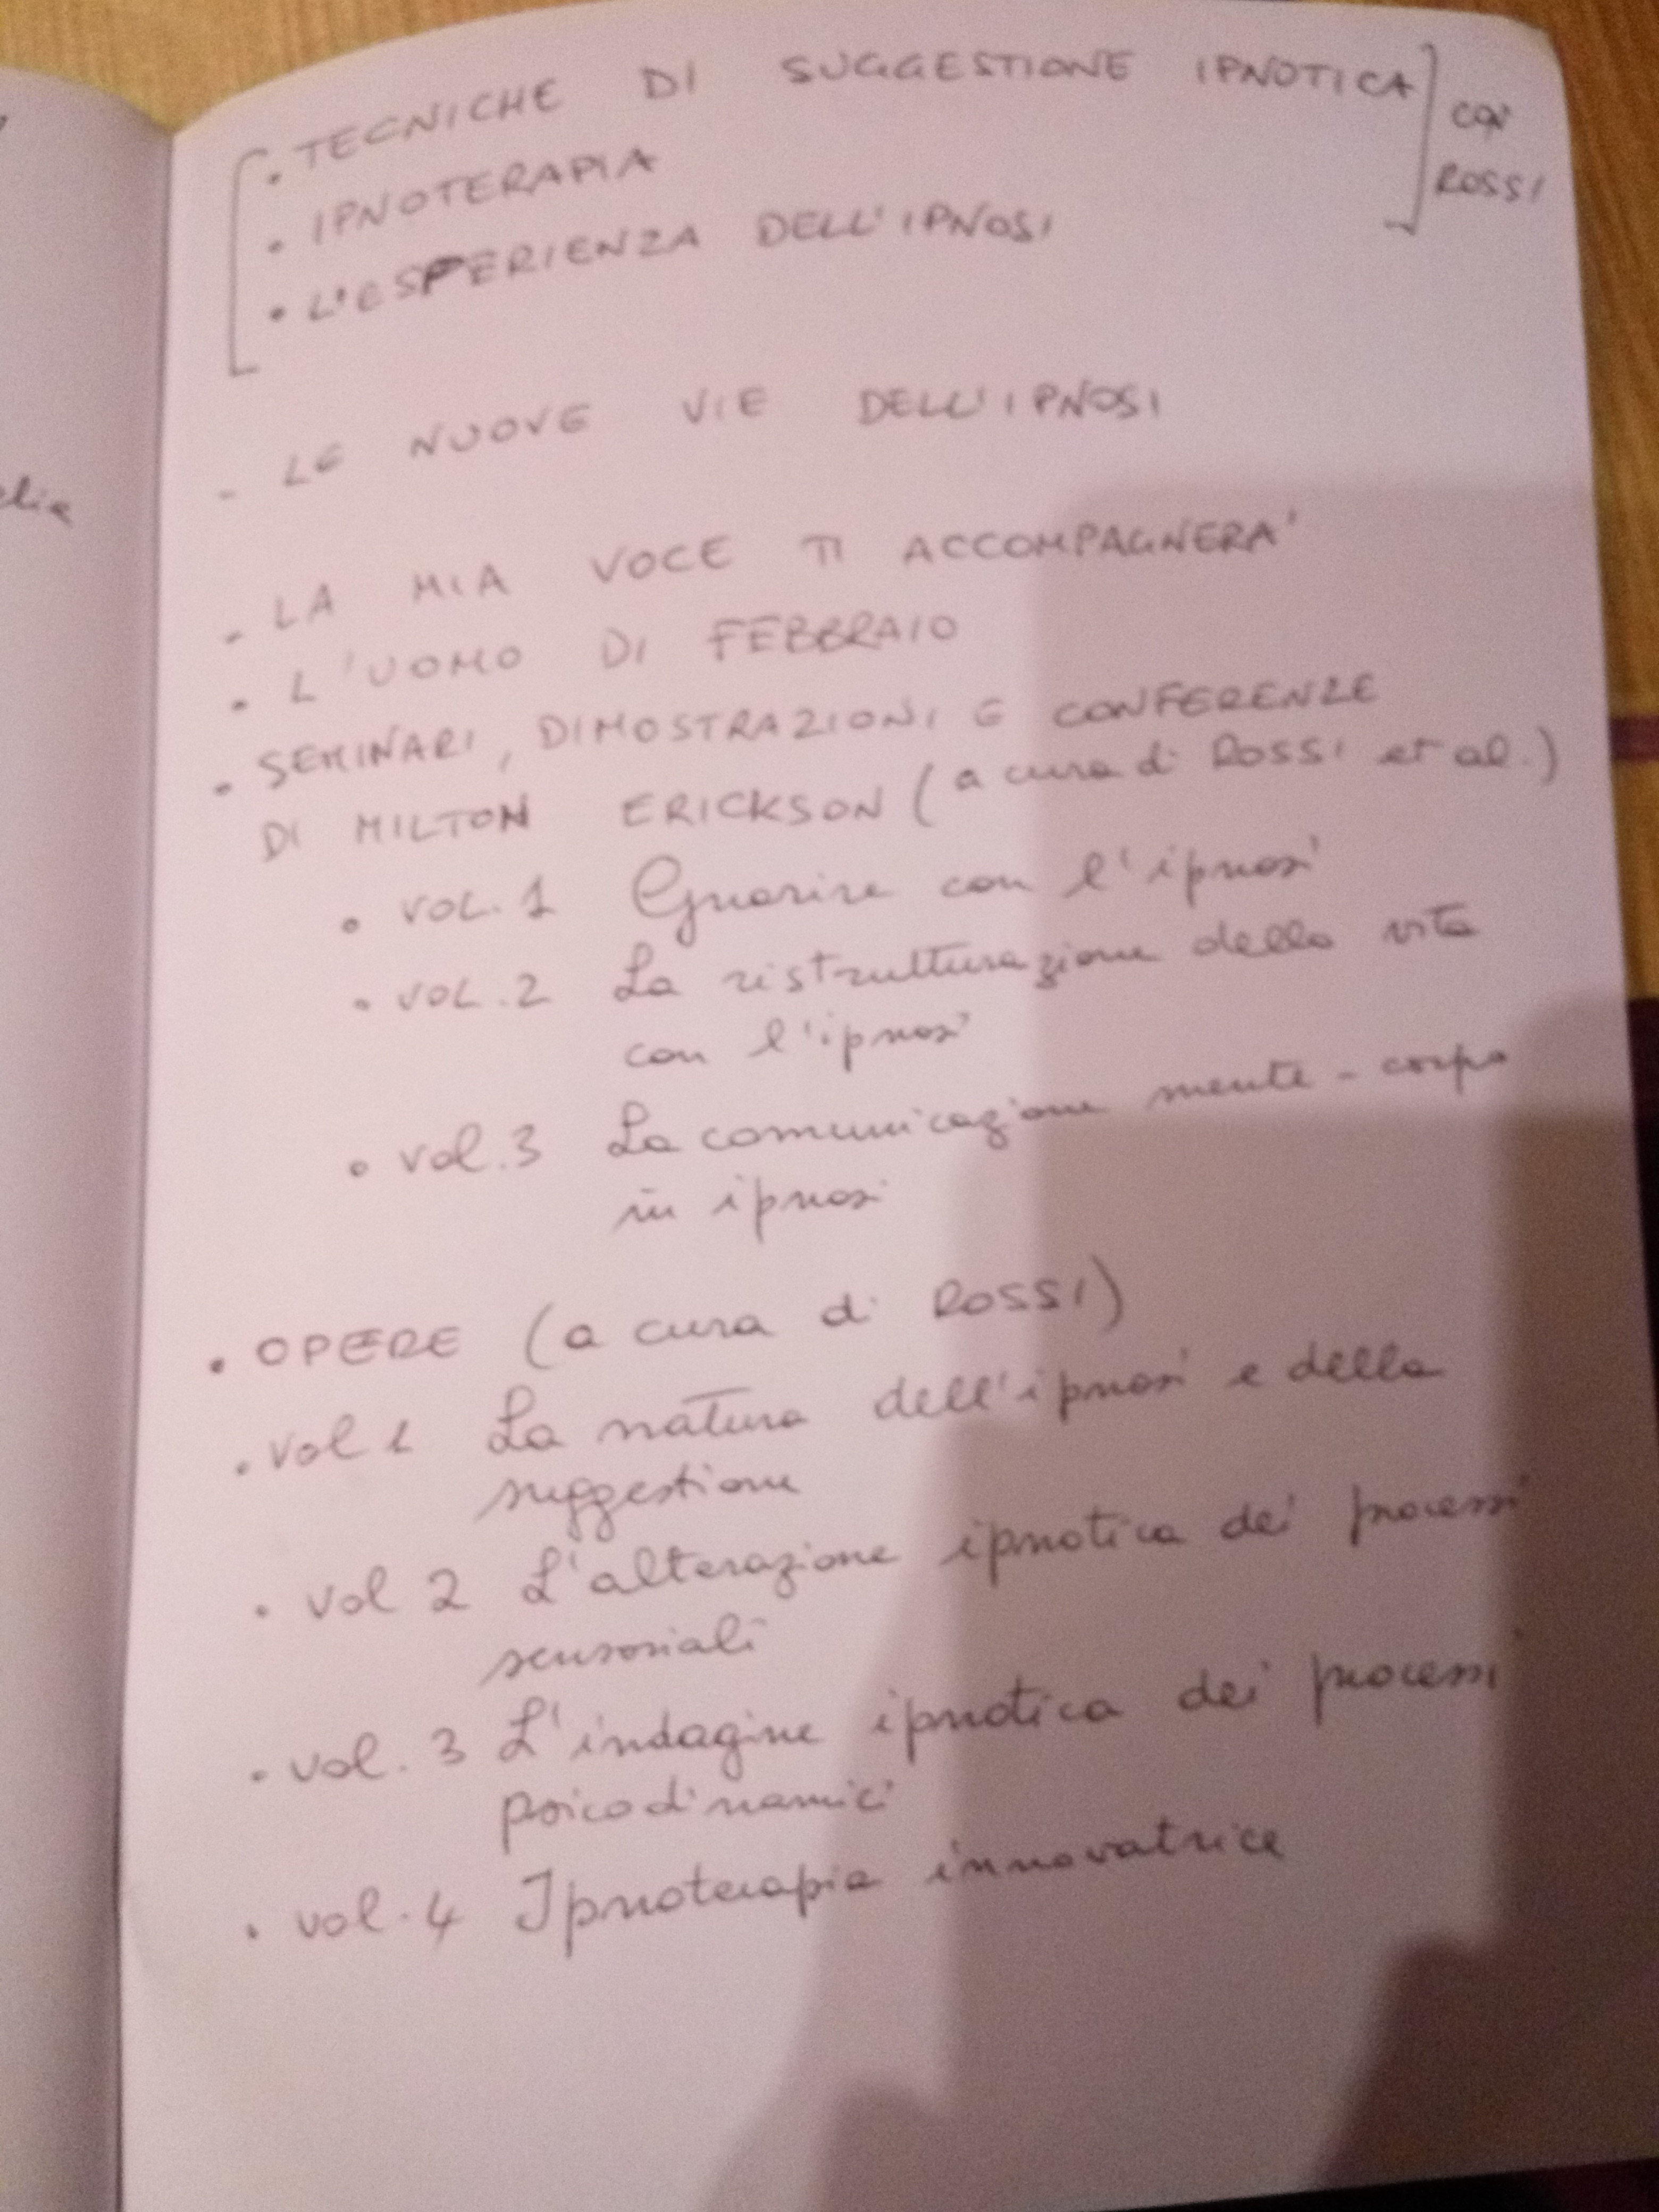 • TECNICHE DI SUGGESTIONE IPNOTICA
• IPNOTERAPIA
• L'ESPERIENZA DELL'IPNOSI
CON
ROSSI
- LE NUOVE VIE DELL'IPNOSI
- LA MIA VOCE TI ACCOMPAGNERA'
• L'UOMO DI FEBBRAIO
• SEMINARI, DIMOSTRAZIONI E CONFERENZE
DI MILTON ERICKSON (a cura di ROSSI et al.)
• VOL. 1 Guarire con l'ipnosi
• VOL. 2 La ristrutturazione della vita
con l'ipnosi
• vol. 3 La comunicazione mente - corpo
in ipnosi
• OPERE (a cura di ROSSI)
• vol 1 La natura dell'ipnosi e della
suggestione
• vol 2 L'alterazione ipnotica dei processi
sensoriali
• vol. 3 L'indagine ipnotica dei processi
psicodinamici
• vol. 4 Ipnoterapia innovatrice